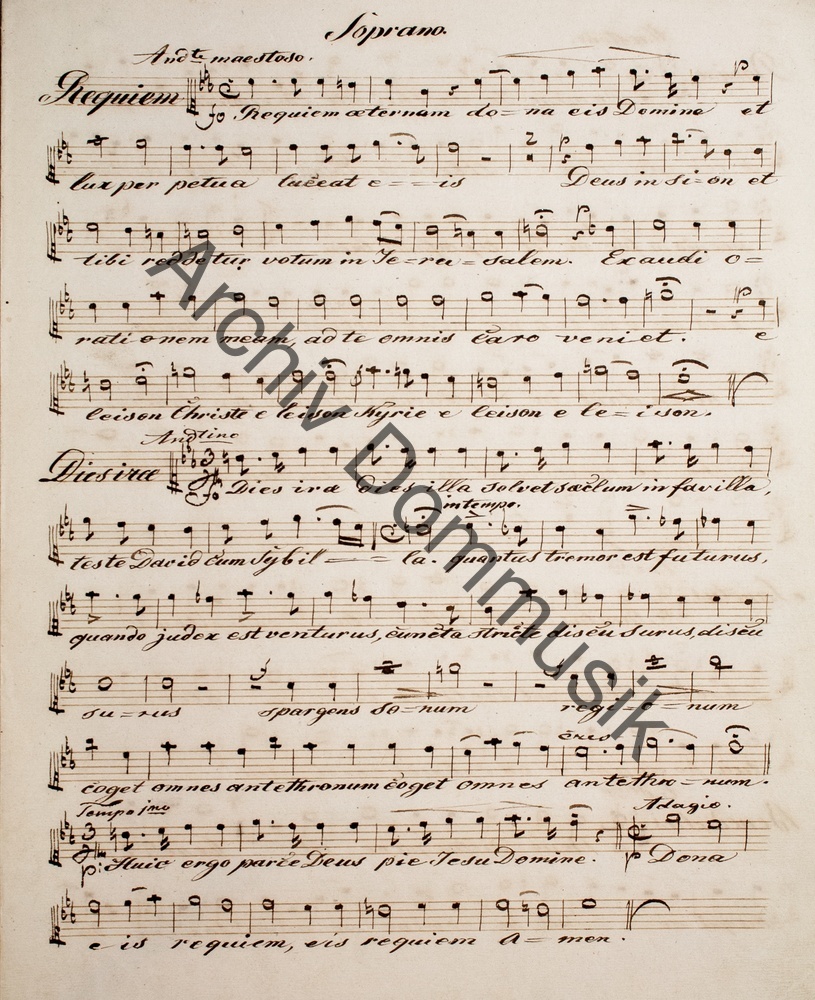 Soprano.
Andte maestoso.
Requiem
Requiem æternam do=na eis Domine et
lux per petua luceat e==is Deus in Si=on et
tibi reddetur votum in Je=ru=salem. Exaudi o=
rati onem meam, ad te omnis Caro veniet. e
leison Christe e leison Kyrie e leison e le=ison.
Andtino
Dies iræ
Dies iræ dies illa solvet sæclum in favilla,
in tempo.
teste David cum Sybil==la. quantus tremor est futurus,
quando judex est venturus, cuncta stricte discu surus, discu
su=rus spargens so=num regi=o=num
cres
coget omnes ante thronum coget omnes ante thro=num.
Tempo 1mo
Adagio.
Huic ergo parce Deus pie Jesu Domine. Dona
e is requiem, eis requiem A=men.
Archiv Dommusik